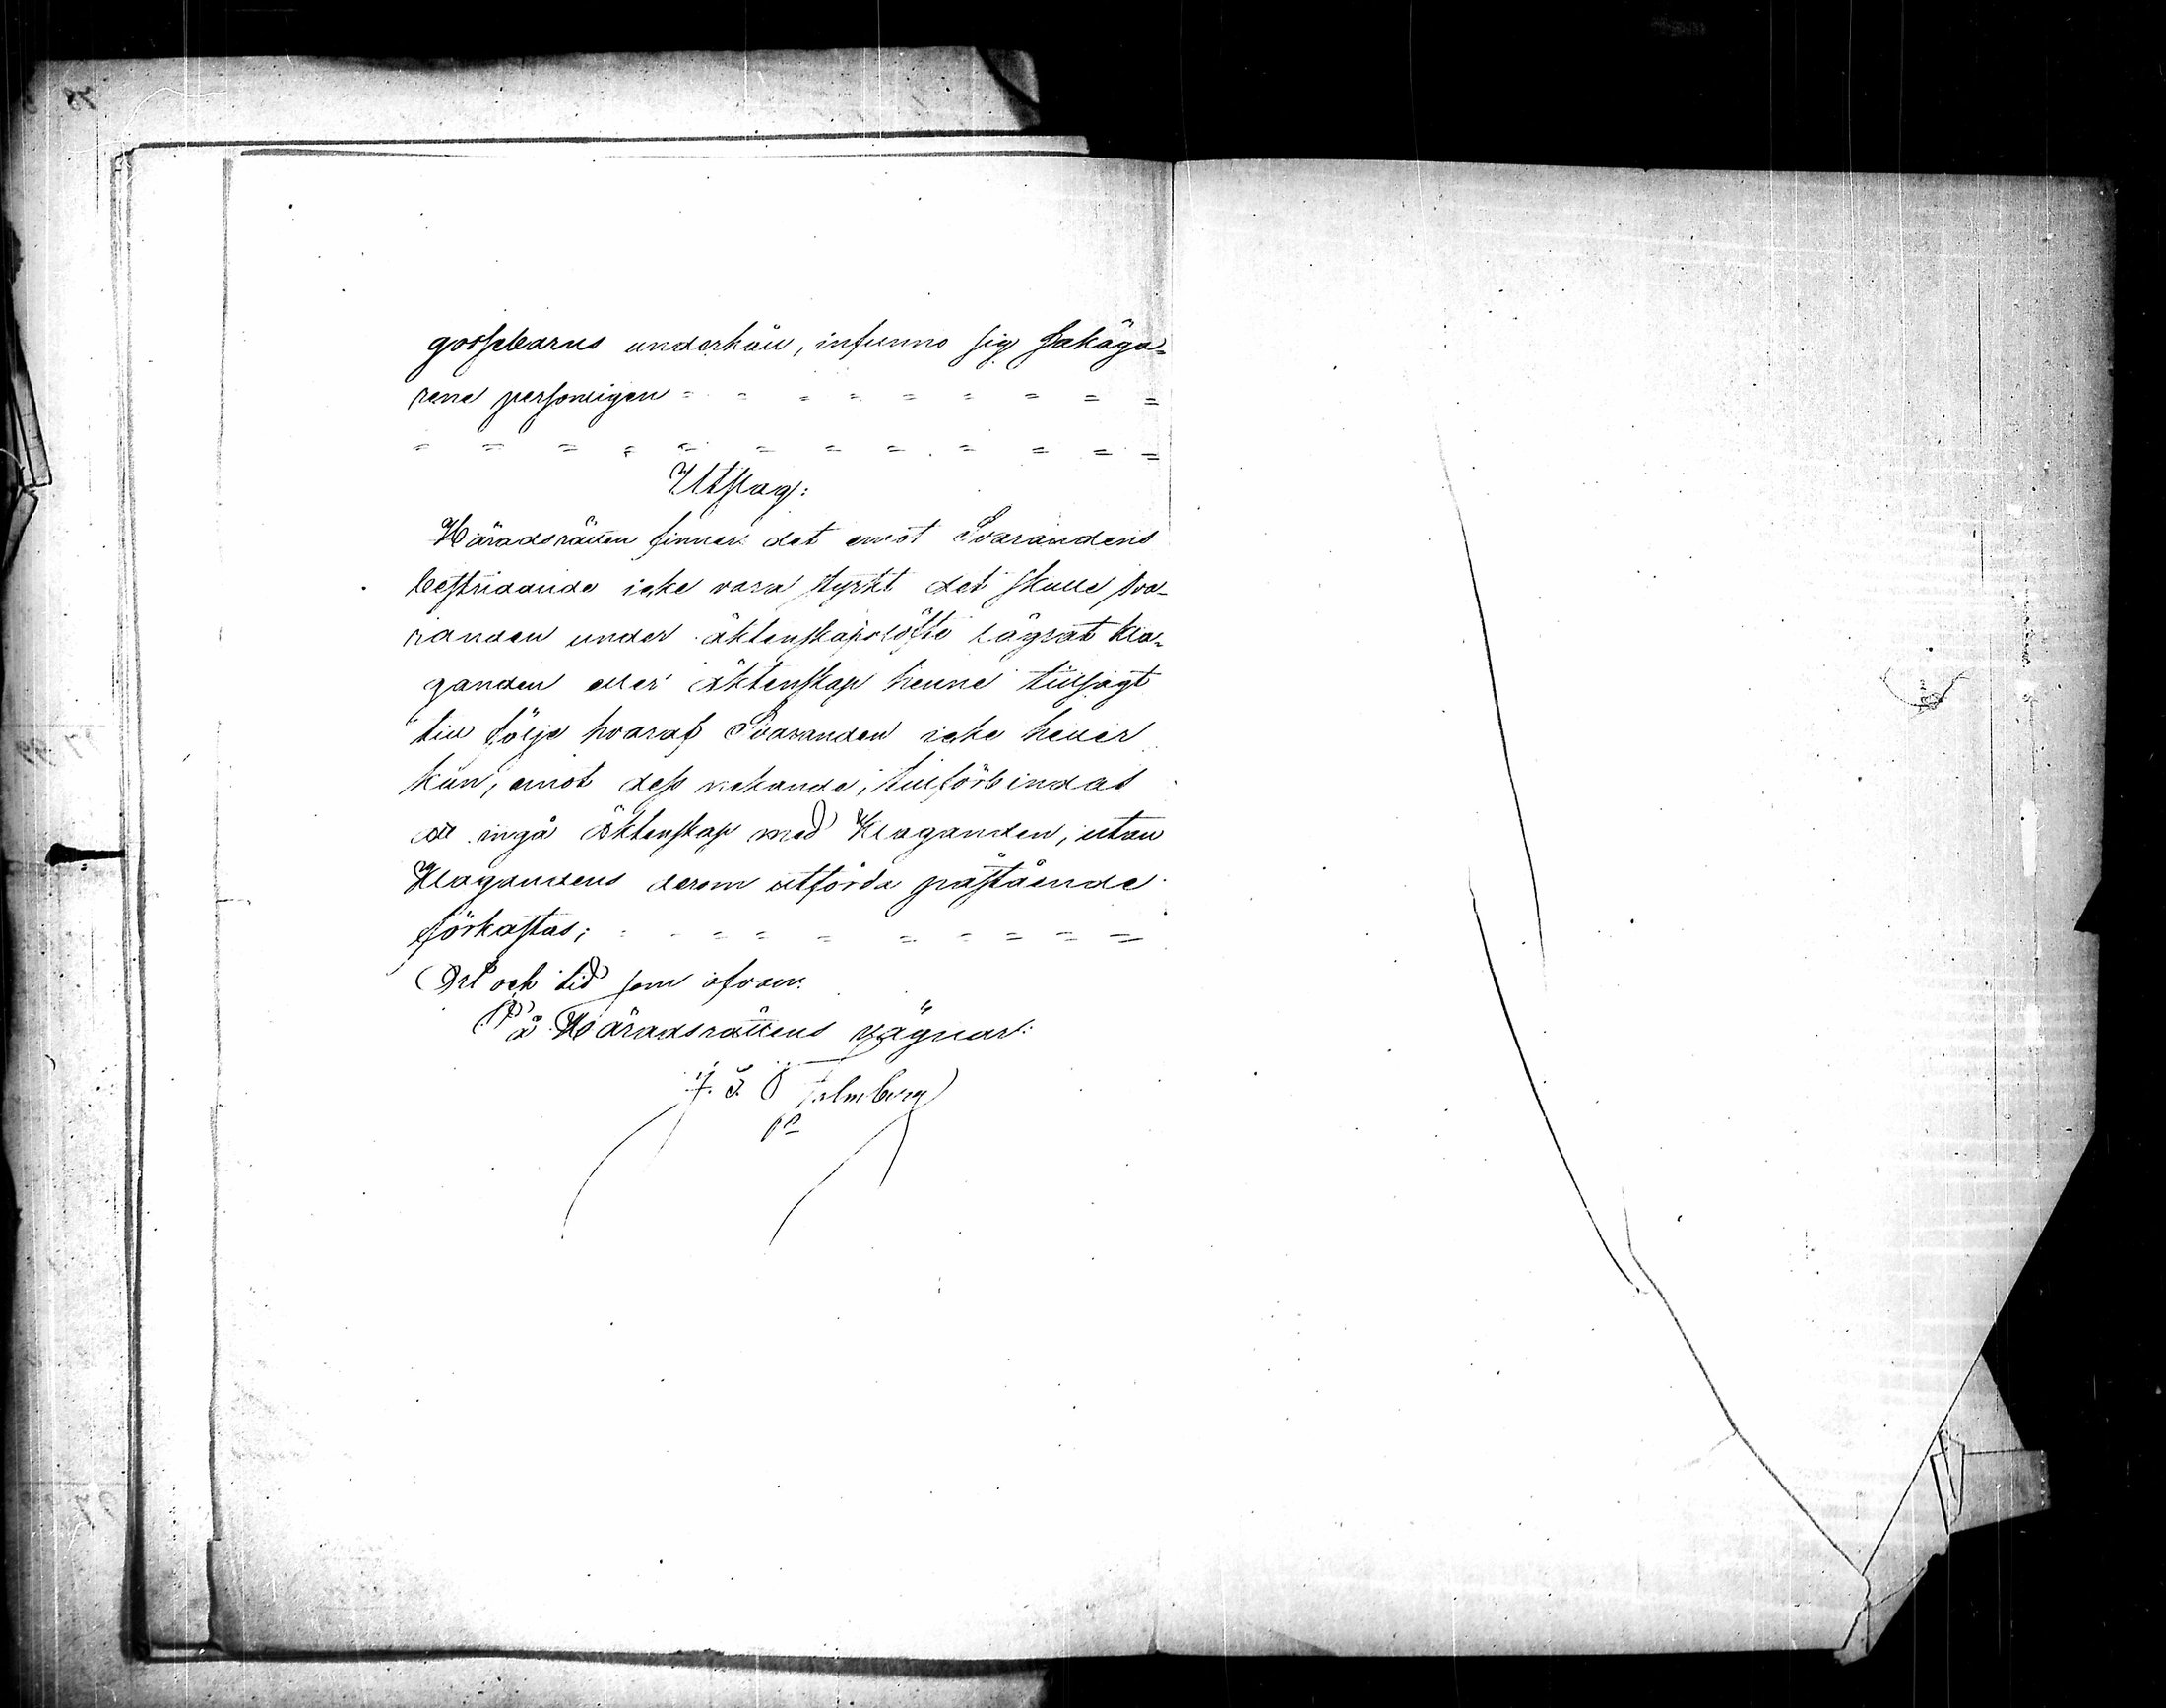 gossebarns underhåll, infunno sig Sakäga-
rene personligen = = = = = = = = =
= = = = = = = = = = = =
Utslag:
Häradsrätten finner det emot Svarandens
bestridande icke vara styrkt det skulle sva-
randen under äktenskapslöfte lägrat kla-
ganden eller äktenskap henne tillsagt
till följe hvaraf Svaranden icke heller
kan, emot dess nekande, tillförbindas
att ingå äktenskap med Klaganden, utan
Klagandens derom utförda påstående
förkastas; = = = = = = = = =
Ort och tid som ofvan.
På Häradsrättens vägnar:
Malmberg